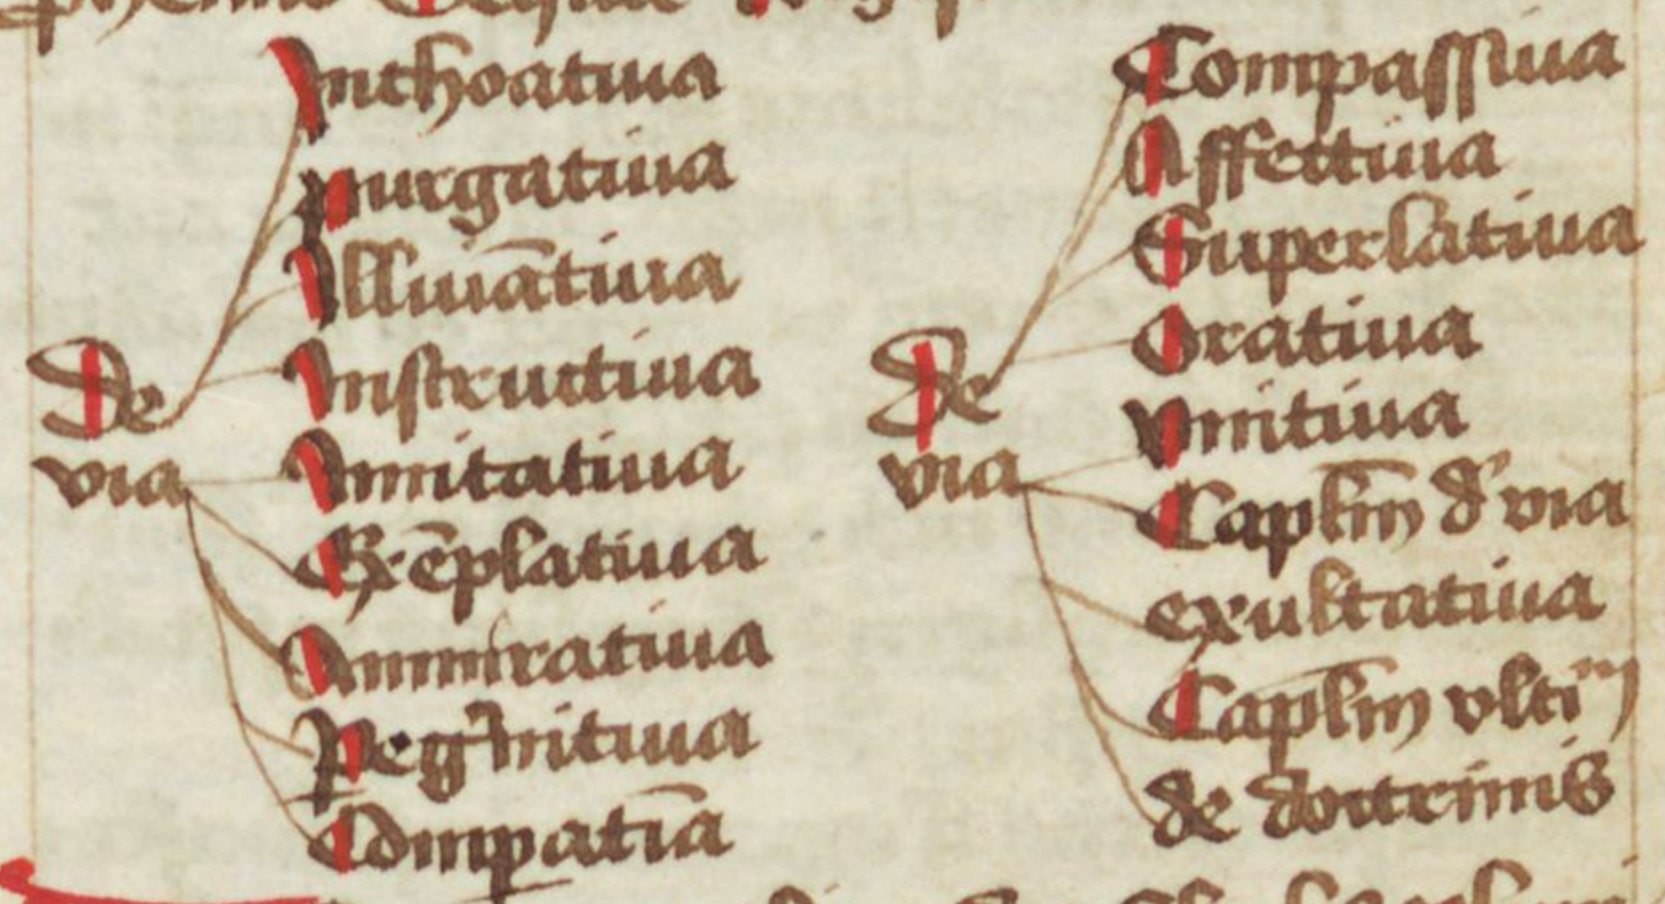 De
via
Inchoatiua
purgatiua
Illuiātiua
Instructiua
Imitatiua
Exēplatiua
Ammiratiua
Compatīa
De
via
Compassiua
Affectiua
Superlatiua
Oratiua
vnitiua
Caplm̄ d' via
exultatiua
Caplm̄ vltiᵐ
de doctrinis